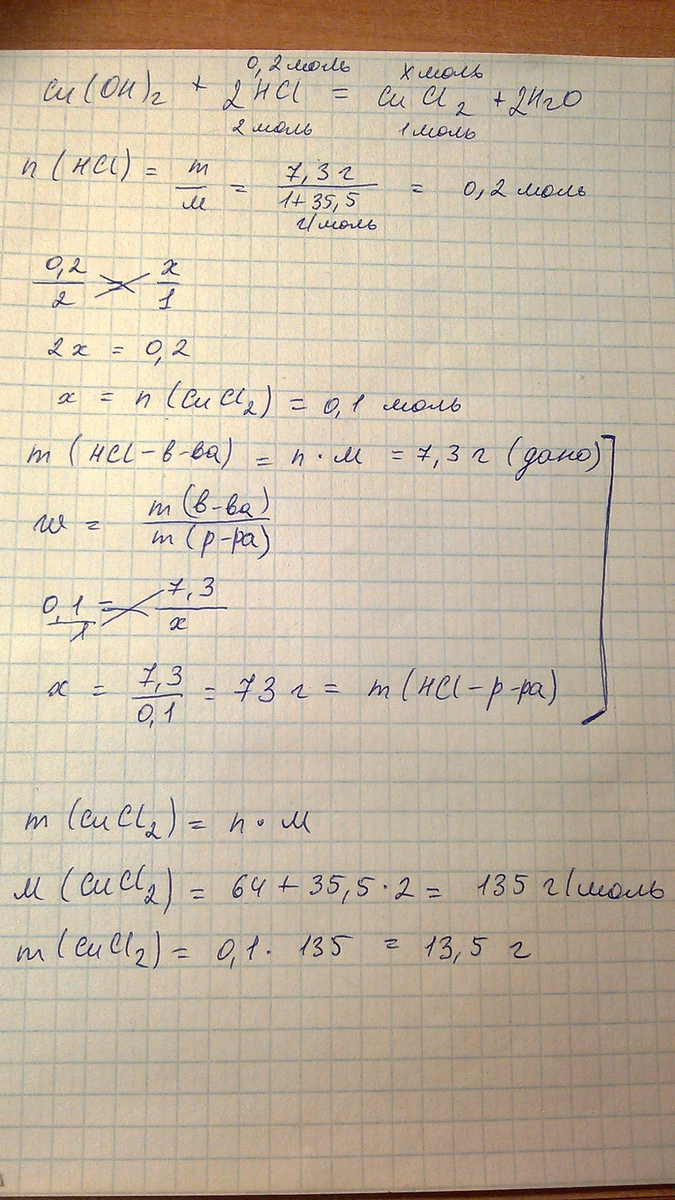 0,2 моль х моль
Cu(OH)2 + 2HCl = CuCl2 + 2H2O
2 моль 1 моль
n (HCl) = m/M = 7,3 г/1+35,5 г/моль = 0,2 моль
0,2/2 x/1
2x = 0,2
x = n (CuCl2) = 0,1 моль
m (HCl-в-ва) = n · M = 7,3 г (дано)
w = m (в-ва)/m (р-ра)
0,1/1 = 7,3/x
x = 7,3/0,1 = 73 г = m (HCl-р-ра)
m (CuCl2) = n · M
M (CuCl2) = 64 + 35,5 · 2 = 135 г/моль
m (CuCl2) = 0,1 · 135 = 13,5 г